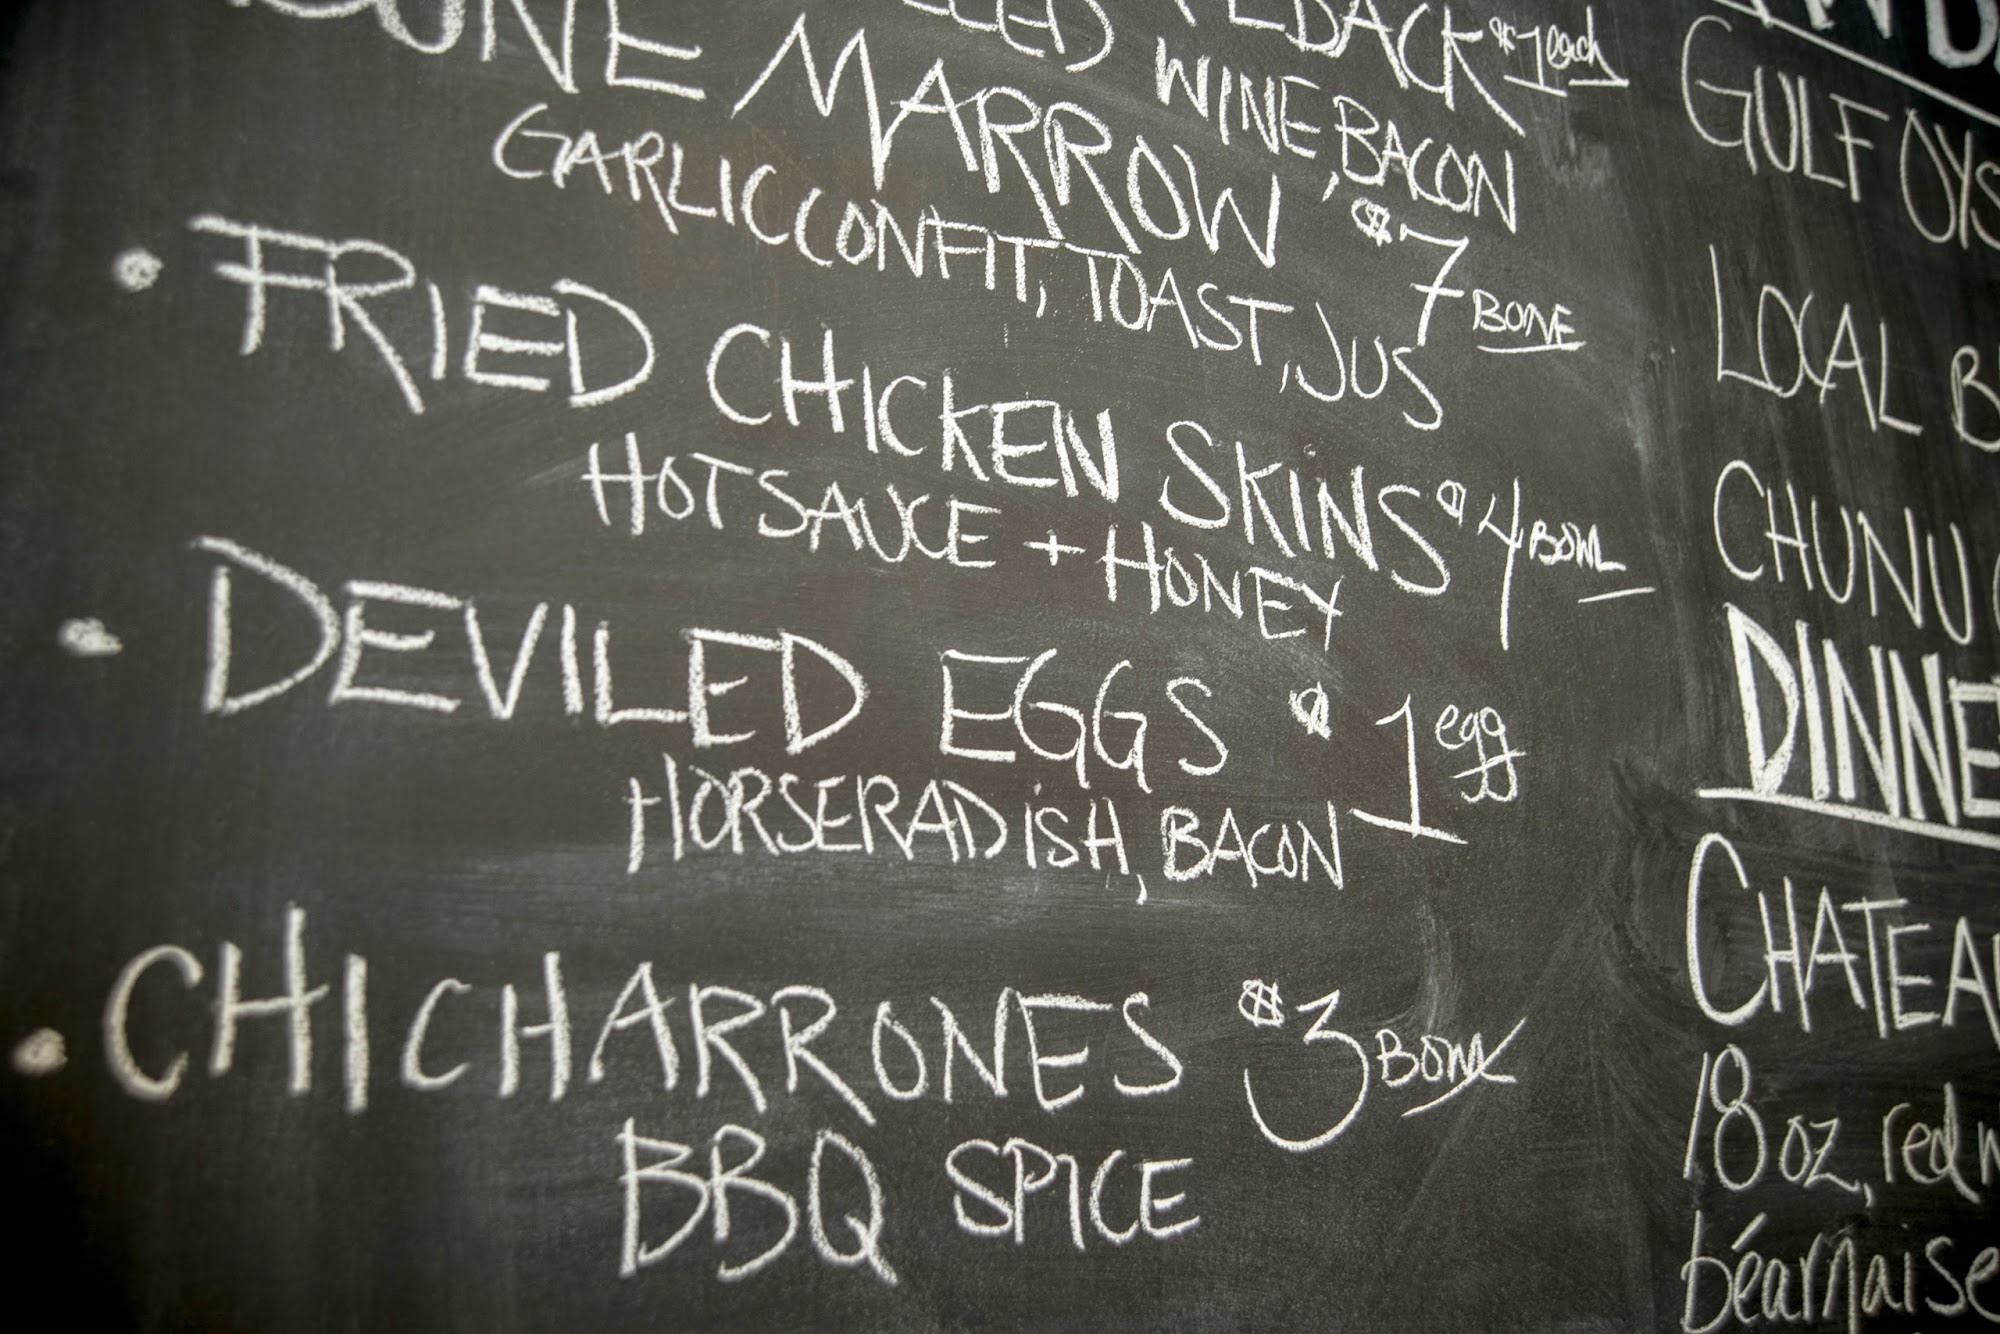 $1 each
WINE, BACON
MARROW $7 BONE
GARLIC CONFIT, TOAST, JUS
• FRIED CHICKEN SKINS $4 BOWL
HOT SAUCE + HONEY
• DEVILED EGGS $1 egg
HORSERADISH, BACON
• CHICHARRONES $3 BOWL
BBQ SPICE
GULF OYS
LOCAL B
CHUNU
DINNE
CHATEA
18 oz, red
béarnaise